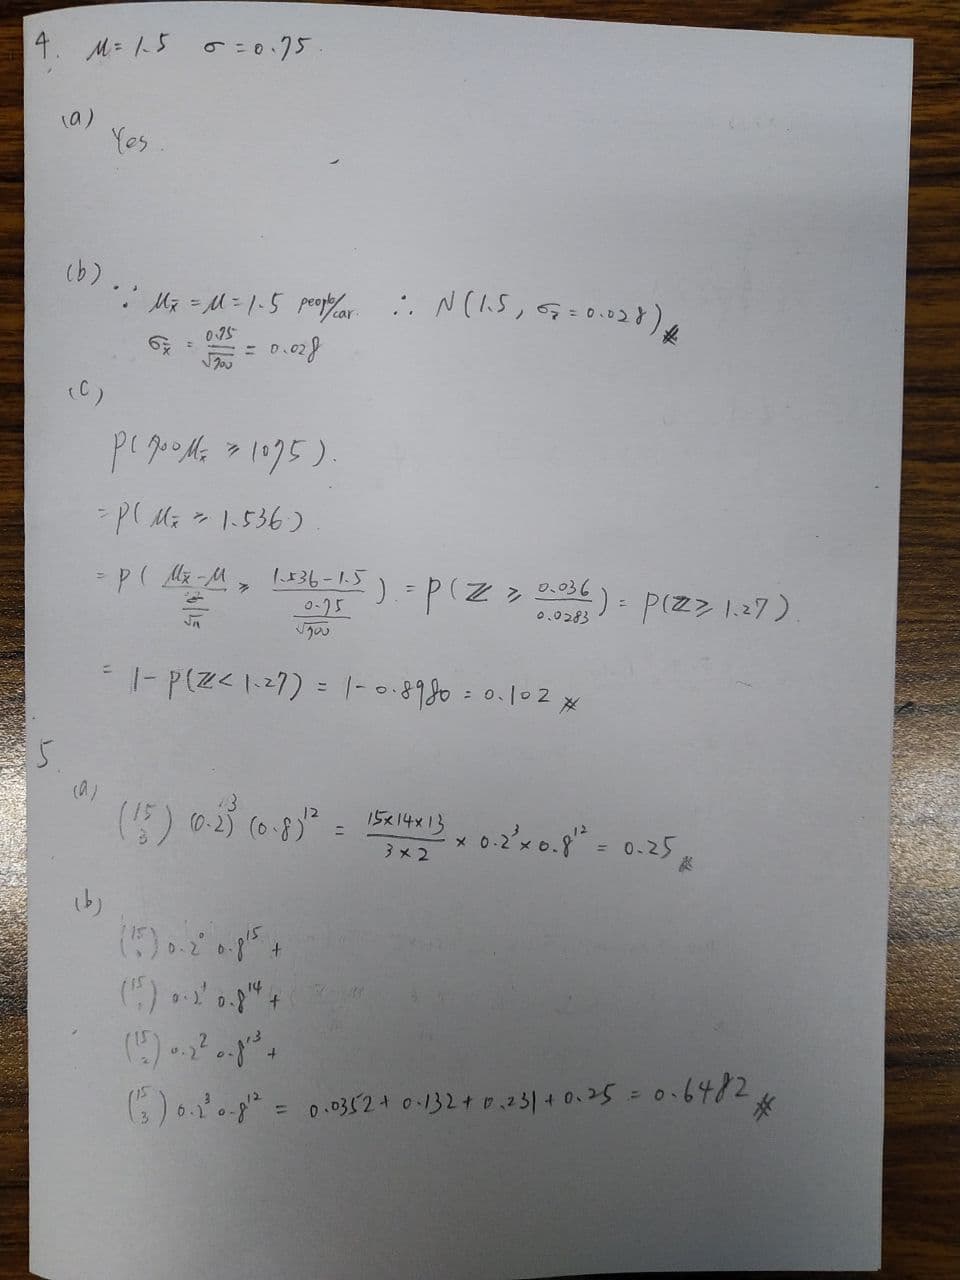 4. μ = 1.5 σ = 0.75.
(a)
Yes.
(b)
∵ μx̄ = μ = 1.5 people/car. ∴ N(1.5, σx̄ = 0.028) #
σx̄ = 0.75/√700 = 0.028
(c)
P(700μx̄ ≥ 1075).
= P(μx̄ ≥ 1.536).
= P( (μx̄ - μ)/(σ/√n) ≥ (1.536 - 1.5)/(0.75/√700) ). = P(Z ≥ 0.036/0.0283) = P(Z ≥ 1.27).
= 1 - P(Z < 1.27) = 1 - 0.8980 = 0.102 #
5.
(a)
(15 3) (0.2)^3 (0.8)^12 = (15×14×13)/(3×2) × 0.2^3 × 0.8^12 = 0.25 #
(b)
(15 0) 0.2^0 0.8^15 +
(15 1) 0.2^1 0.8^14 +
(15 2) 0.2^2 0.8^13 +
(15 3) 0.2^3 0.8^12 = 0.0352 + 0.132 + 0.231 + 0.25 = 0.6482 #